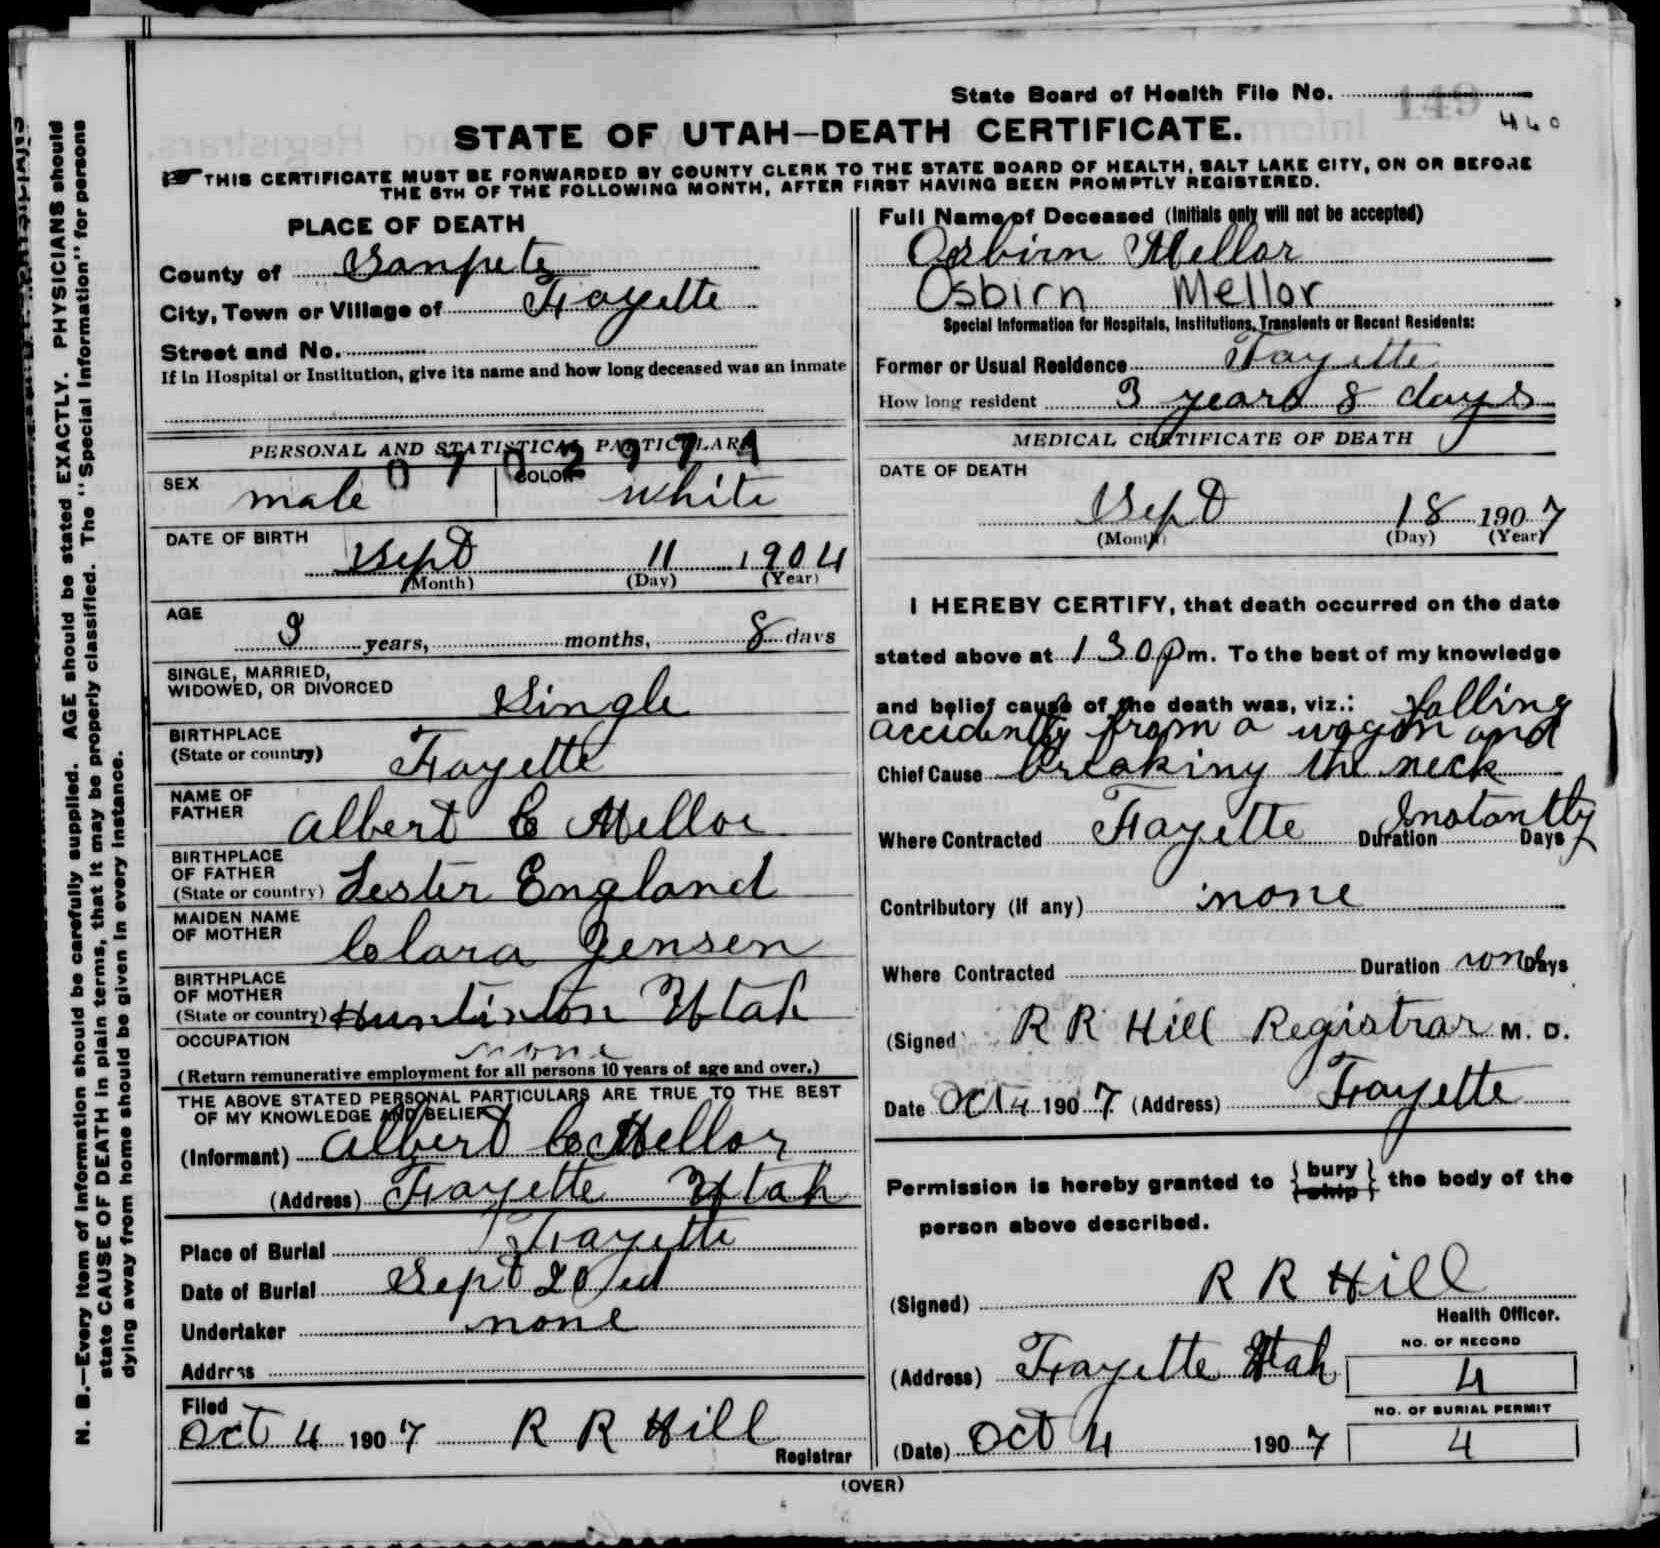 State Board of Health File No. 149
440
STATE OF UTAH—DEATH CERTIFICATE.
THIS CERTIFICATE MUST BE FORWARDED BY COUNTY CLERK TO THE STATE BOARD OF HEALTH, SALT LAKE CITY, ON OR BEFORE
THE 5TH OF THE FOLLOWING MONTH, AFTER FIRST HAVING BEEN PROMPTLY REGISTERED.
PLACE OF DEATH
County of Sanpete
City, Town or Village of Fayette
Street and No.
If in Hospital or Institution, give its name and how long deceased was an inmate
PERSONAL AND STATISTICAL PARTICULARS
SEX male COLOR white
DATE OF BIRTH
Sept 11 1904
(Month) (Day) (Year)
AGE
3 years, months, 8 days
SINGLE, MARRIED,
WIDOWED, OR DIVORCED Single
BIRTHPLACE
(State or country) Fayette
NAME OF
FATHER Albert C Mellor
BIRTHPLACE
OF FATHER
(State or country) Lester England
MAIDEN NAME
OF MOTHER Clara Jensen
BIRTHPLACE
OF MOTHER
(State or country) Huntinton Utah
OCCUPATION
none
(Return remunerative employment for all persons 10 years of age and over.)
THE ABOVE STATED PERSONAL PARTICULARS ARE TRUE TO THE BEST
OF MY KNOWLEDGE AND BELIEF
(Informant) Albert C Mellor
(Address) Fayette Utah
Place of Burial Fayette
Date of Burial Sept 20
Undertaker none
Address
Filed
Oct 4 1907 R R Hill
Registrar
Full Name of Deceased (Initials only will not be accepted)
Osbirn Mellor
Osbirn Mellor
Special Information for Hospitals, Institutions, Transients or Recent Residents:
Former or Usual Residence Fayette
How long resident 3 years 8 days
MEDICAL CERTIFICATE OF DEATH
DATE OF DEATH
Sept 18 1907
(Month) (Day) (Year)
I HEREBY CERTIFY, that death occurred on the date
stated above at 1 30 pm. To the best of my knowledge
and belief cause of the death was, viz.: falling
accidently from a wagon and
Chief Cause breaking the neck
Where Contracted Fayette Duration Instantly Days
Contributory (if any) none
Where Contracted Duration none Days
(Signed R R Hill Registrar M. D.
Date Oct 4 1907 (Address) Fayette
Permission is hereby granted to { bury / ship } the body of the
person above described.
(Signed) R R Hill
Health Officer.
(Address) Fayette Utah
NO. OF RECORD
4
NO. OF BURIAL PERMIT
4
(Date) Oct 4 1907
(OVER)
N. B.—Every item of information should be carefully supplied. AGE should be stated EXACTLY. PHYSICIANS should
state CAUSE OF DEATH in plain terms, that it may be properly classified. The "Special Information" for persons
dying away from home should be given in every instance.